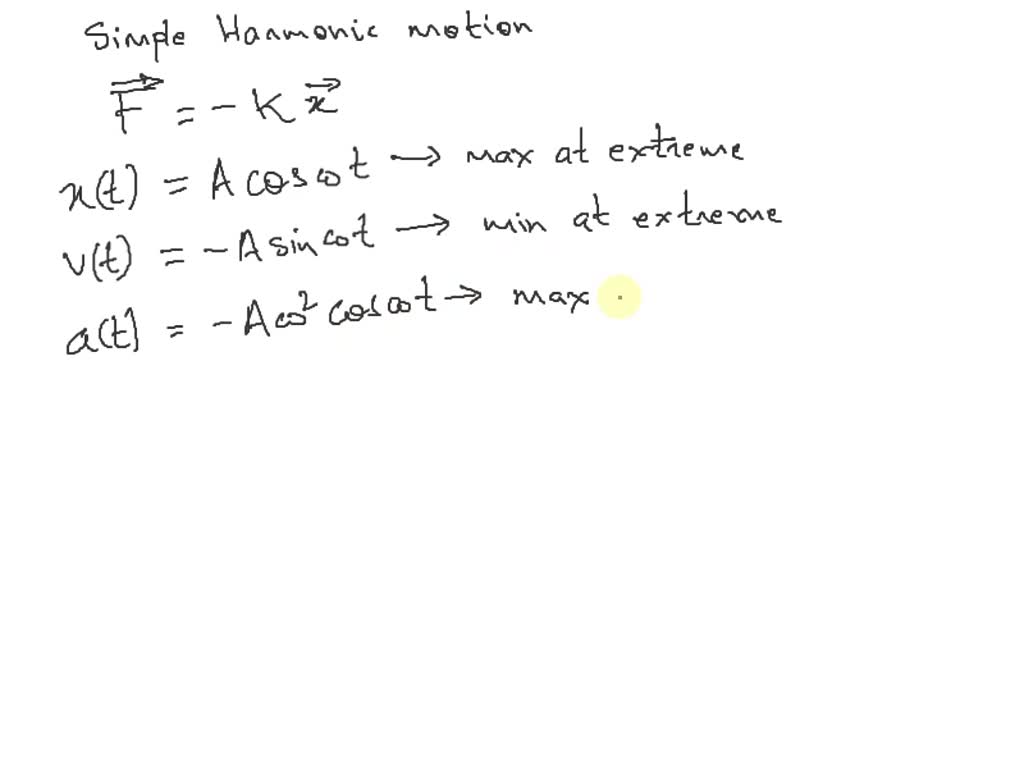 Simple Harmonic motion
F⃗ = - K x⃗
x(t) = A cos ωt → max at extreme
v(t) = - A sin ωt → min at extreme
a(t) = - A ω² cos ωt → max